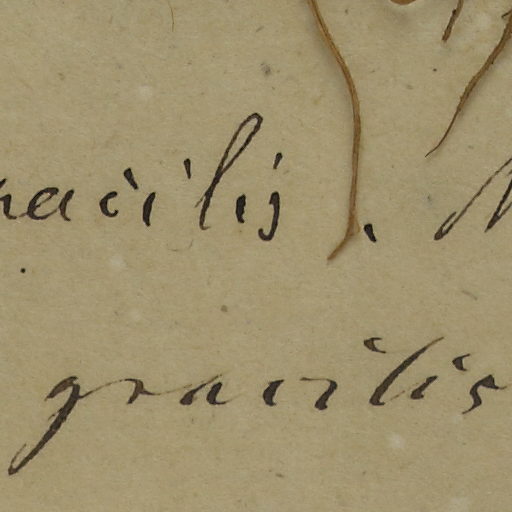 racilis.
gracilis